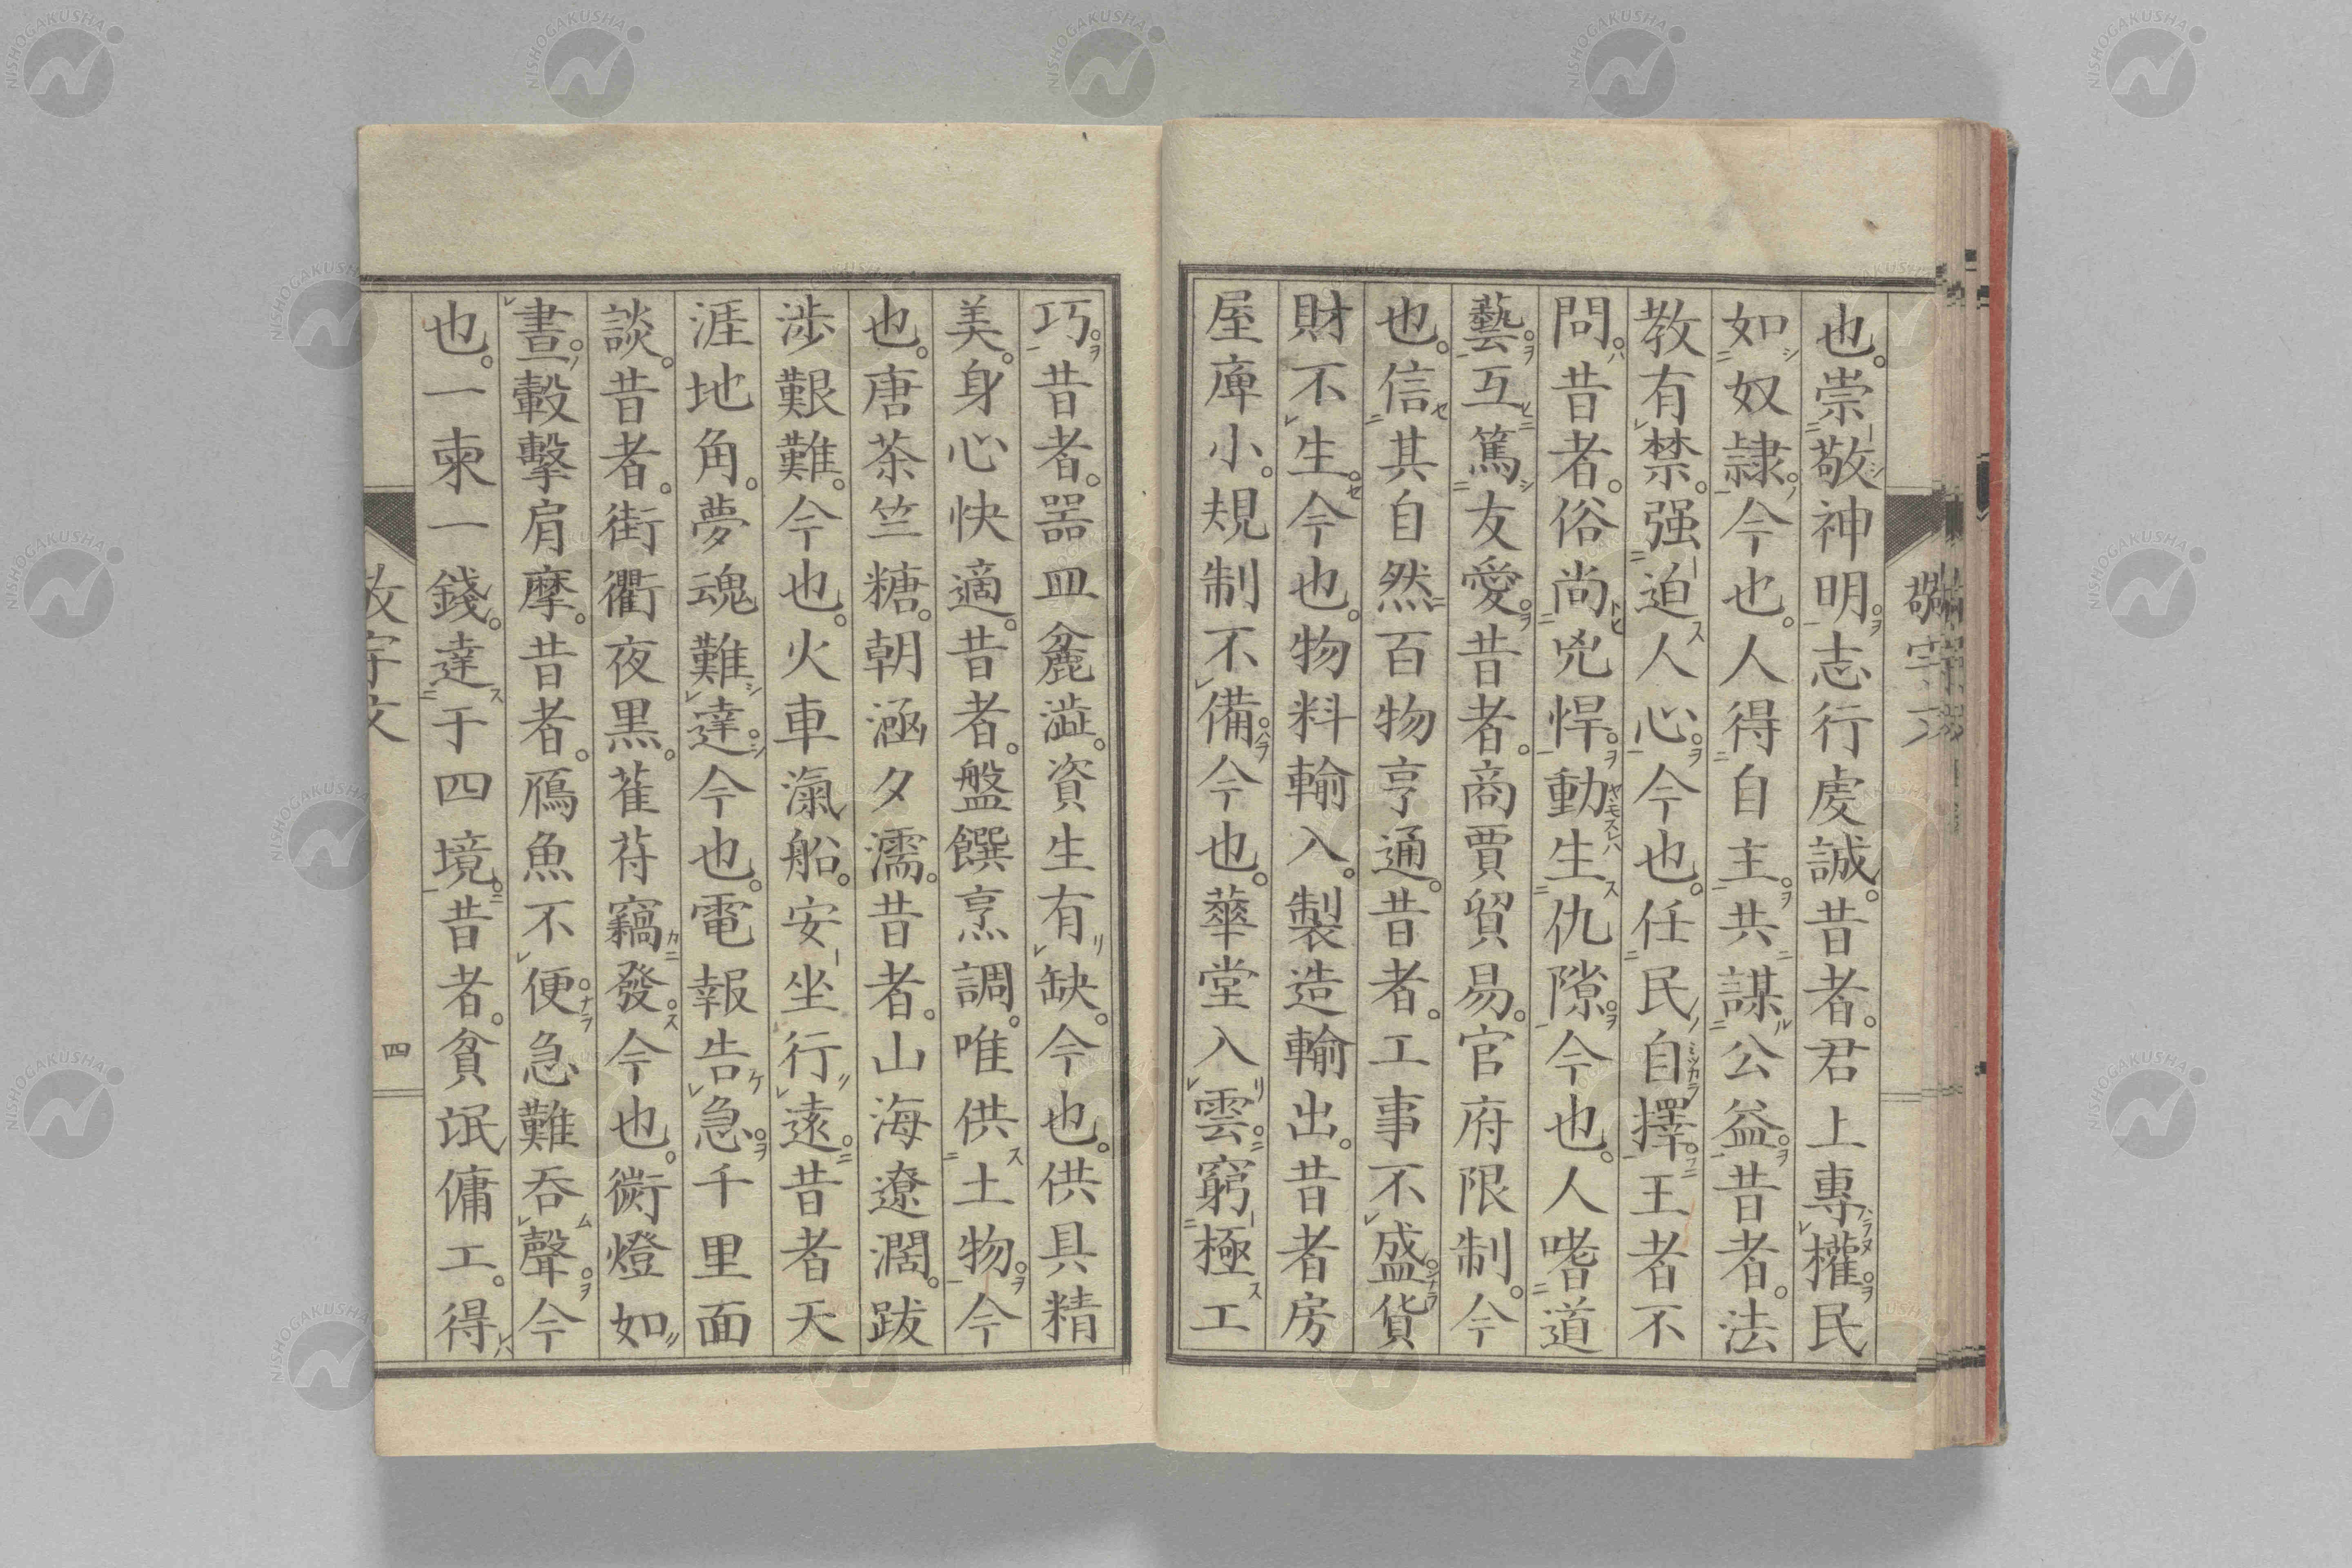 也。崇敬神明。志行虔誠。昔者。君上專權。民
如奴隷。今也。人得自主。共謀公益。昔者。法
教有禁。强迫人心。今也。任民自擇。王者不
問。昔者。俗尚兇悍。動生仇隙。今也。人嗜道
藝。互篤友愛。昔者。商賈貿易。官府限制。今
也。信其自然。百物亨通。昔者。工事不盛。貨
財不生。今也。物料輸入。製造輸出。昔者房
屋庳小。規制不備。今也。華堂入雲。窮極工
巧。昔者。器皿麁澁。資生有缺。今也。供具精
美。身心快適。昔者。盤饌烹調。唯供土物。今
也。唐茶竺糖。朝涵夕濡。昔者。山海遼濶。跋
渉艱難。今也。火車滊船。安坐行遠。昔者天
涯地角。夢魂難達。今也。電報告急。千里面
談。昔者。街衢夜黒。萑苻竊發。今也。街燈如
晝。轂擊肩摩。昔者。鴈魚不便。急難吞聲。今
也。一柬一錢。達于四境。昔者。貧氓傭工。得
敬宇文
四